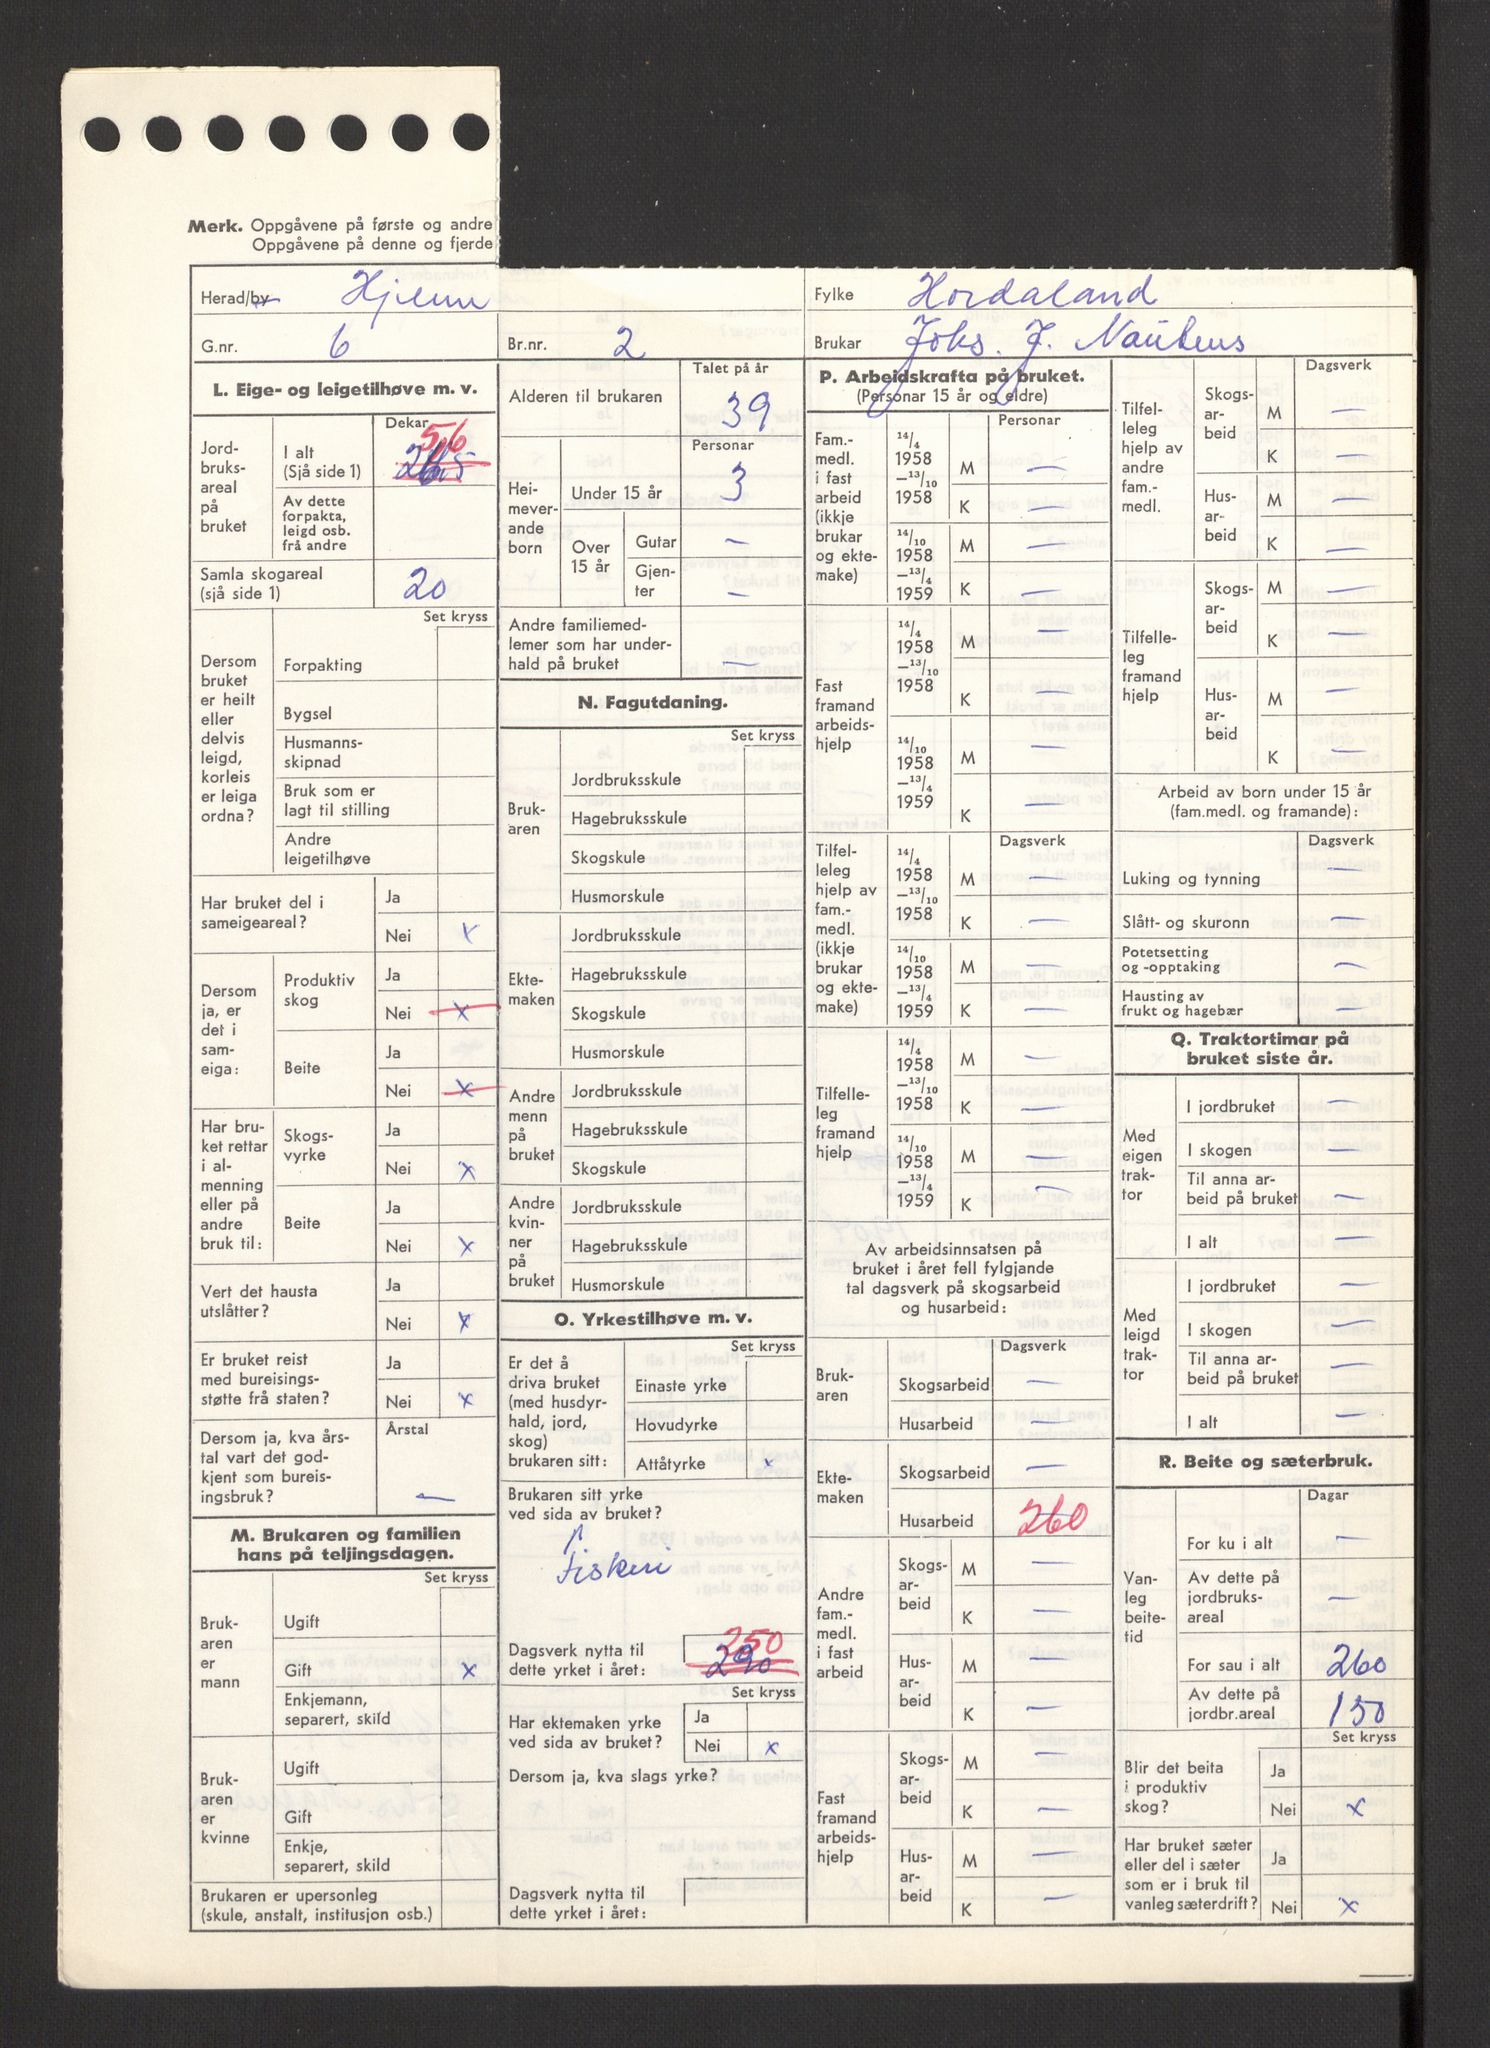 Merk. Oppgåvene på første og andre
Oppgåvene på denne og fjerde
Herad/by Hjelme
Fylke Hordaland
G.nr. 6
Br.nr. 2
Brukar Johs. J. Nautnes
L. Eige- og leigetilhøve m. v.
Dekar
Jordbruksareal på bruket
I alt (Sjå side 1) 5,6
Av dette forpakta, leigd osb. frå andre
Samla skogareal (sjå side 1) 20
Set kryss
Dersom bruket er heilt eller delvis leigd, korleis er leiga ordna?
Forpakting
Bygsel
Husmannsskipnad
Bruk som er lagt til stilling
Andre leigetilhøve
Har bruket del i sameigeareal?
Ja
Nei x
Dersom ja, er det i sameiga:
Produktiv skog
Ja
Nei x
Beite
Ja
Nei x
Har bruket rettar i almenning eller på andre bruk til:
Skogsvyrke
Ja
Nei x
Beite
Ja
Nei x
Vert det hausta utslåtter?
Ja
Nei x
Er bruket reist med bureisingsstøtte frå staten?
Ja
Nei x
Dersom ja, kva årstal vart det godkjent som bureisingsbruk?
Årstal
—
M. Brukaren og familien hans på teljingsdagen.
Set kryss
Brukaren er mann
Ugift
Gift x
Enkjemann, separert, skild
Brukaren er kvinne
Ugift
Gift
Enkje, separert, skild
Brukaren er upersonleg (skule, anstalt, institusjon osb.)
Talet på år
Alderen til brukaren 39
Personar
Heimeverande born
Under 15 år 3
Over 15 år
Gutar —
Gjenter —
Andre familiemedlemer som har underhald på bruket —
N. Fagutdaning.
Set kryss
Brukaren
Jordbruksskule
Hagebruksskule
Skogskule
Husmorskule
Ektemaken
Jordbruksskule
Hagebruksskule
Skogskule
Husmorskule
Andre menn på bruket
Jordbruksskule
Hagebruksskule
Skogskule
Andre kvinner på bruket
Jordbruksskule
Hagebruksskule
Husmorskule
O. Yrkestilhøve m. v.
Set kryss
Er det å driva bruket (med husdyrhald, jord, skog) brukaren sitt:
Einaste yrke
Hovudyrke
Attåtyrke x
Brukaren sitt yrke ved sida av bruket?
Fiskeri
Dagsverk nytta til dette yrket i året: 250 290
Set kryss
Har ektemaken yrke ved sida av bruket?
Ja
Nei x
Dersom ja, kva slags yrke?
Dagsverk nytta til dette yrket i året:
P. Arbeidskrafta på bruket.
(Personar 15 år og eldre)
Personar
Fam.-medl. i fast arbeid (ikkje brukar og ektemake)
14/4 1958 —13/10 1958
M —
K —
14/10 1958 —13/4 1959
M —
K —
Fast framand arbeidshjelp
14/4 1958 —13/10 1958
M —
K —
14/10 1958 —13/4 1959
M —
K —
Dagsverk
Tilfelleleg hjelp av fam.-medl. (ikkje brukar og ektemake)
14/4 1958 —13/10 1958
M —
K —
14/10 1958 —13/4 1959
M —
K —
Tilfelleleg framand hjelp
14/4 1958 —13/10 1958
M —
K —
14/10 1958 —13/4 1959
M —
K —
Av arbeidsinnsatsen på bruket i året fell fylgjande tal dagsverk på skogsarbeid og husarbeid:
Dagsverk
Brukaren
Skogsarbeid —
Husarbeid —
Ektemaken
Skogsarbeid —
Husarbeid 260
Andre fam.-medl. i fast arbeid
Skogsarbeid
M —
K —
Husarbeid
M —
K —
Fast framand arbeidshjelp
Skogsarbeid
M —
K —
Husarbeid
M —
K —
Dagsverk
Tilfelleleg hjelp av andre fam.-medl.
Skogsarbeid
M —
K —
Husarbeid
M —
K —
Tilfelleleg framand hjelp
Skogsarbeid
M —
K —
Husarbeid
M —
K —
Arbeid av born under 15 år (fam.medl. og framande):
Dagsverk
Luking og tynning —
Slått- og skuronn —
Potetsetting og -opptaking —
Hausting av frukt og hagebær —
Q. Traktortimar på bruket siste år.
Med eigen traktor
I jordbruket —
I skogen —
Til anna arbeid på bruket —
I alt —
Med leigd traktor
I jordbruket —
I skogen —
Til anna arbeid på bruket —
I alt —
R. Beite og sæterbruk.
Dagar
Vanleg beitetid
For ku i alt —
Av dette på jordbruksareal —
For sau i alt 260
Av dette på jordbr.areal 150
Set kryss
Blir det beita i produktiv skog?
Ja
Nei x
Har bruket sæter eller del i sæter som er i bruk til vanleg sæterdrift?
Ja
Nei x